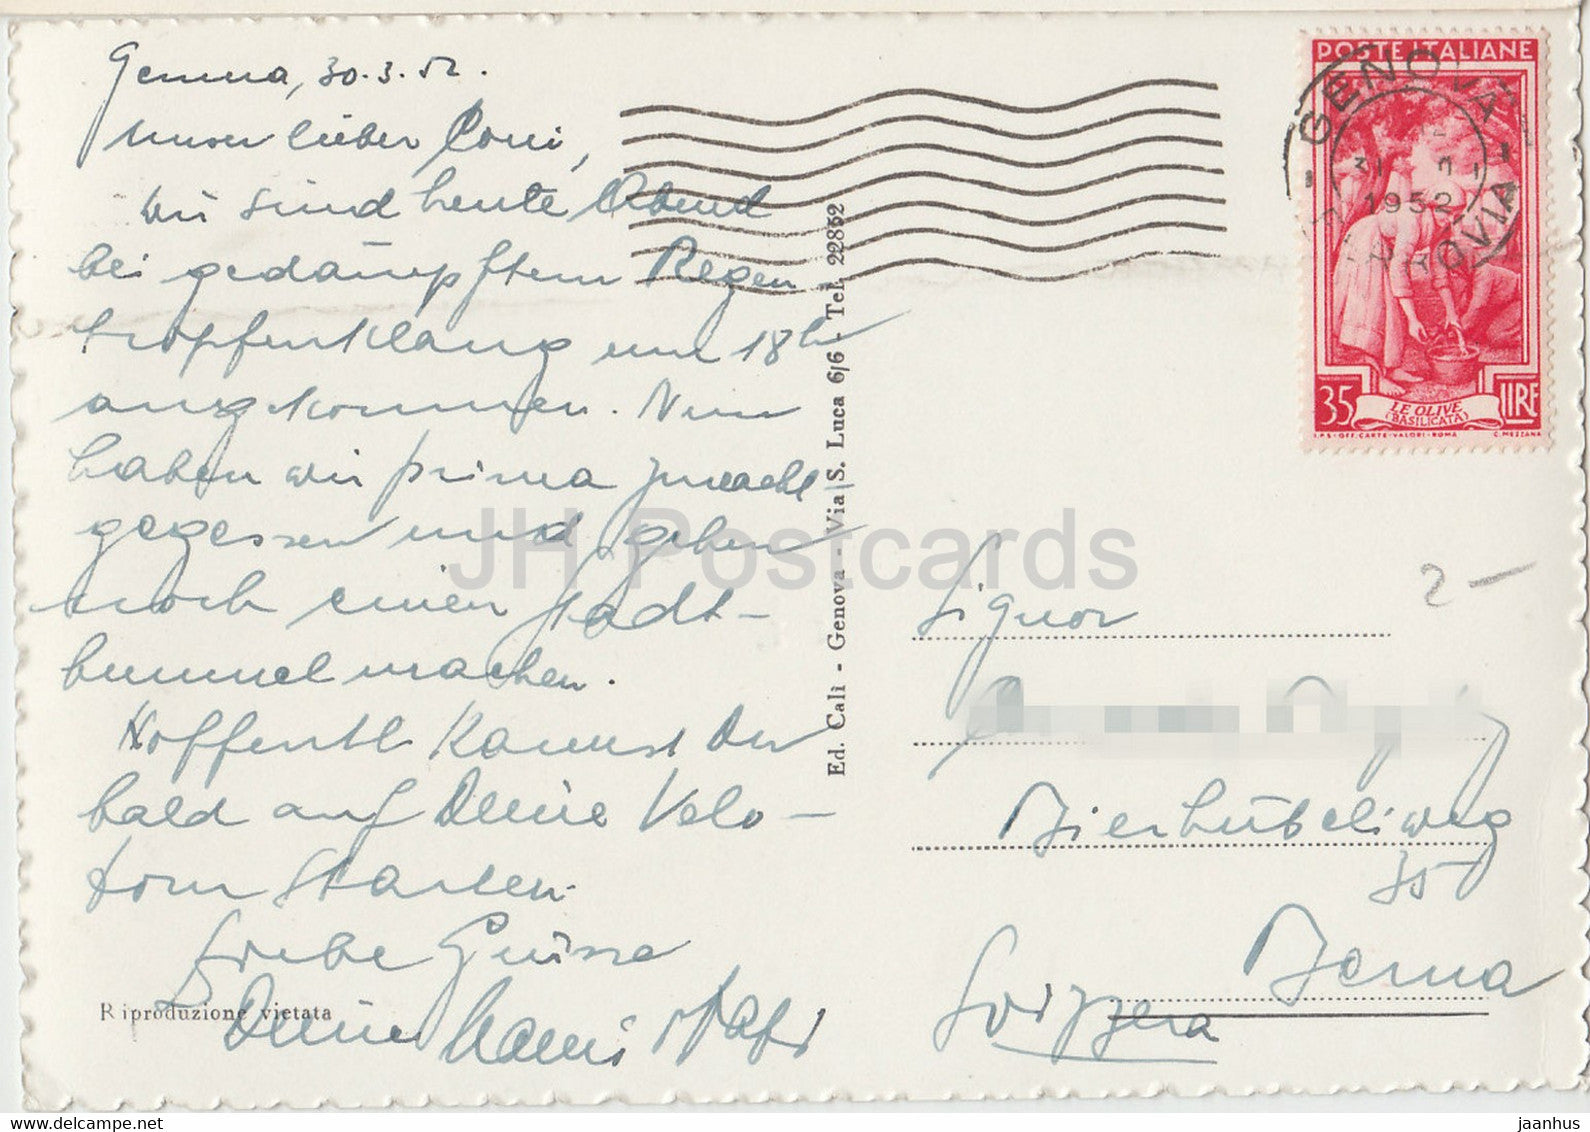 Genua, 30.3.52.
Unser lieber
Wir sind heute Abend
bei gedämpftem Regen
tropfenklang um 18h
angekommen. Nun
haben wir prima znacht
gegessen und gehen
noch einen Stadt-
bummel machen.
Hoffentl. kannst Du
bald auf Deine Velo-
tour starten.
Liebe Grüsse
Deine Mami Papi
Riproduzione vietata
Ed. Calì - Genova - Via S. Luca 6/6 - Tel. 22832
POSTE ITALIANE
GENOVA
1952
FERROVIA
35 LIRE
LE OLIVE
(BASILICATA)
I.P.S. - OFF. CARTE - VALORI - ROMA C. MEZZANA
2 -
Signor
Bierhübeliweg
35
Berna
Svizzera
JH Postcards
www.delcampe.net
jaanhus